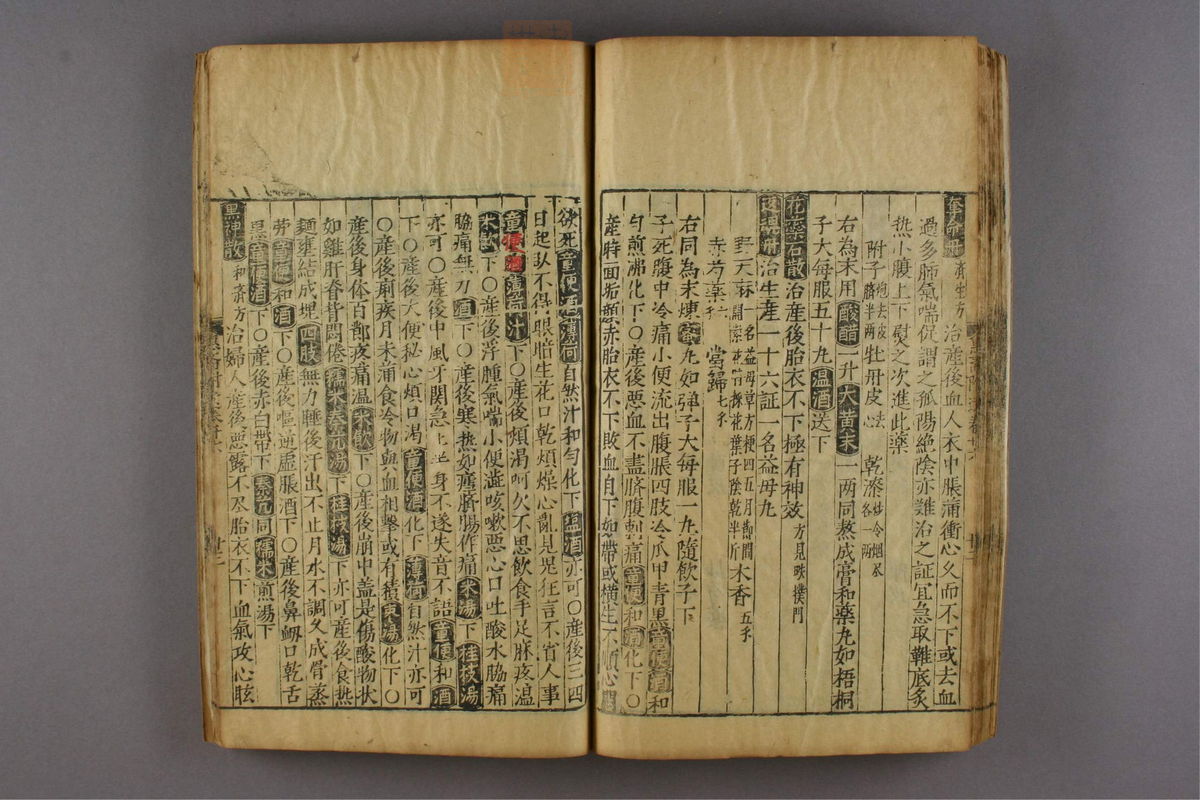 奪命丹 濟生方 治產後血入衣中脹滿衝心久而不下或去血
過多肺氣喘促謂之孤陽絶陰亦難治之証宜急取鞋底炙
热小腹上下熨之次進此藥
附子 炮去皮臍半两 牡丹皮 去心 乾漆 炒令烟尽 各一两
右為末用酸醋一升大黄末一两同熬成膏和藥丸如梧桐
子大每服五十丸温酒送下
花蘂石散 治產後胎衣不下極有神效 方見 撲門
返魂丹 治生產一十六証一名益母丸
野天麻 一名益母草方梗四五月節間開紫花時採花葉子陰乾半斤 木香 五分
赤芍藥 當歸 七分
右同為末煉蜜丸如弹子大每服一丸隨飲子下
子死腹中冷痛小便流出腹脹四肢冷爪甲青黑童便酒和
匀煎沸化下〇產後惡血不盡臍腹刺痛童便和酒化下〇
產時面垢顔赤胎衣不下敗血自下如帶或横生不順心悶
欲死童便酒薄荷自然汁和匀化下塩酒亦可〇產後三四
日起卧不得眼暗生花口乾煩燥心亂見鬼狂言不省人事
童便酒薄荷汁下〇產後煩渴呵欠不思飲食手足麻疼温
米飲下〇產後浮腫氣喘小便澁咳嗽惡心口吐酸水脇痛
脇痛無力酒下〇產後寒热如瘧臍腸作痛米湯下桂枝湯
亦可〇產後中風牙関急半身不遂失音不語童便和酒
下〇產後大便秘心煩口渴童便酒化下薄荷自然汁亦可
〇產後痢疾月未滿食冷物與血相擊或有積棗湯化下〇
產後身体百節疼痛温米飲下〇產後崩中盖是傷酸物状
如雞肝脊背悶倦糯米秦艽湯下桂枝湯下亦可產後食热
麵壅結成塊四肢無力睡後汗出不止月水不調久成骨蒸
劳童便和酒下〇產後嘔逆虚脹酒下〇產後鼻衂口乾舌
黑童便酒下〇產後赤白帶下秦艽同糯米煎湯下
黒神散 和劑方 治婦人產後悪露不尽胎衣不下血氣攻心眩